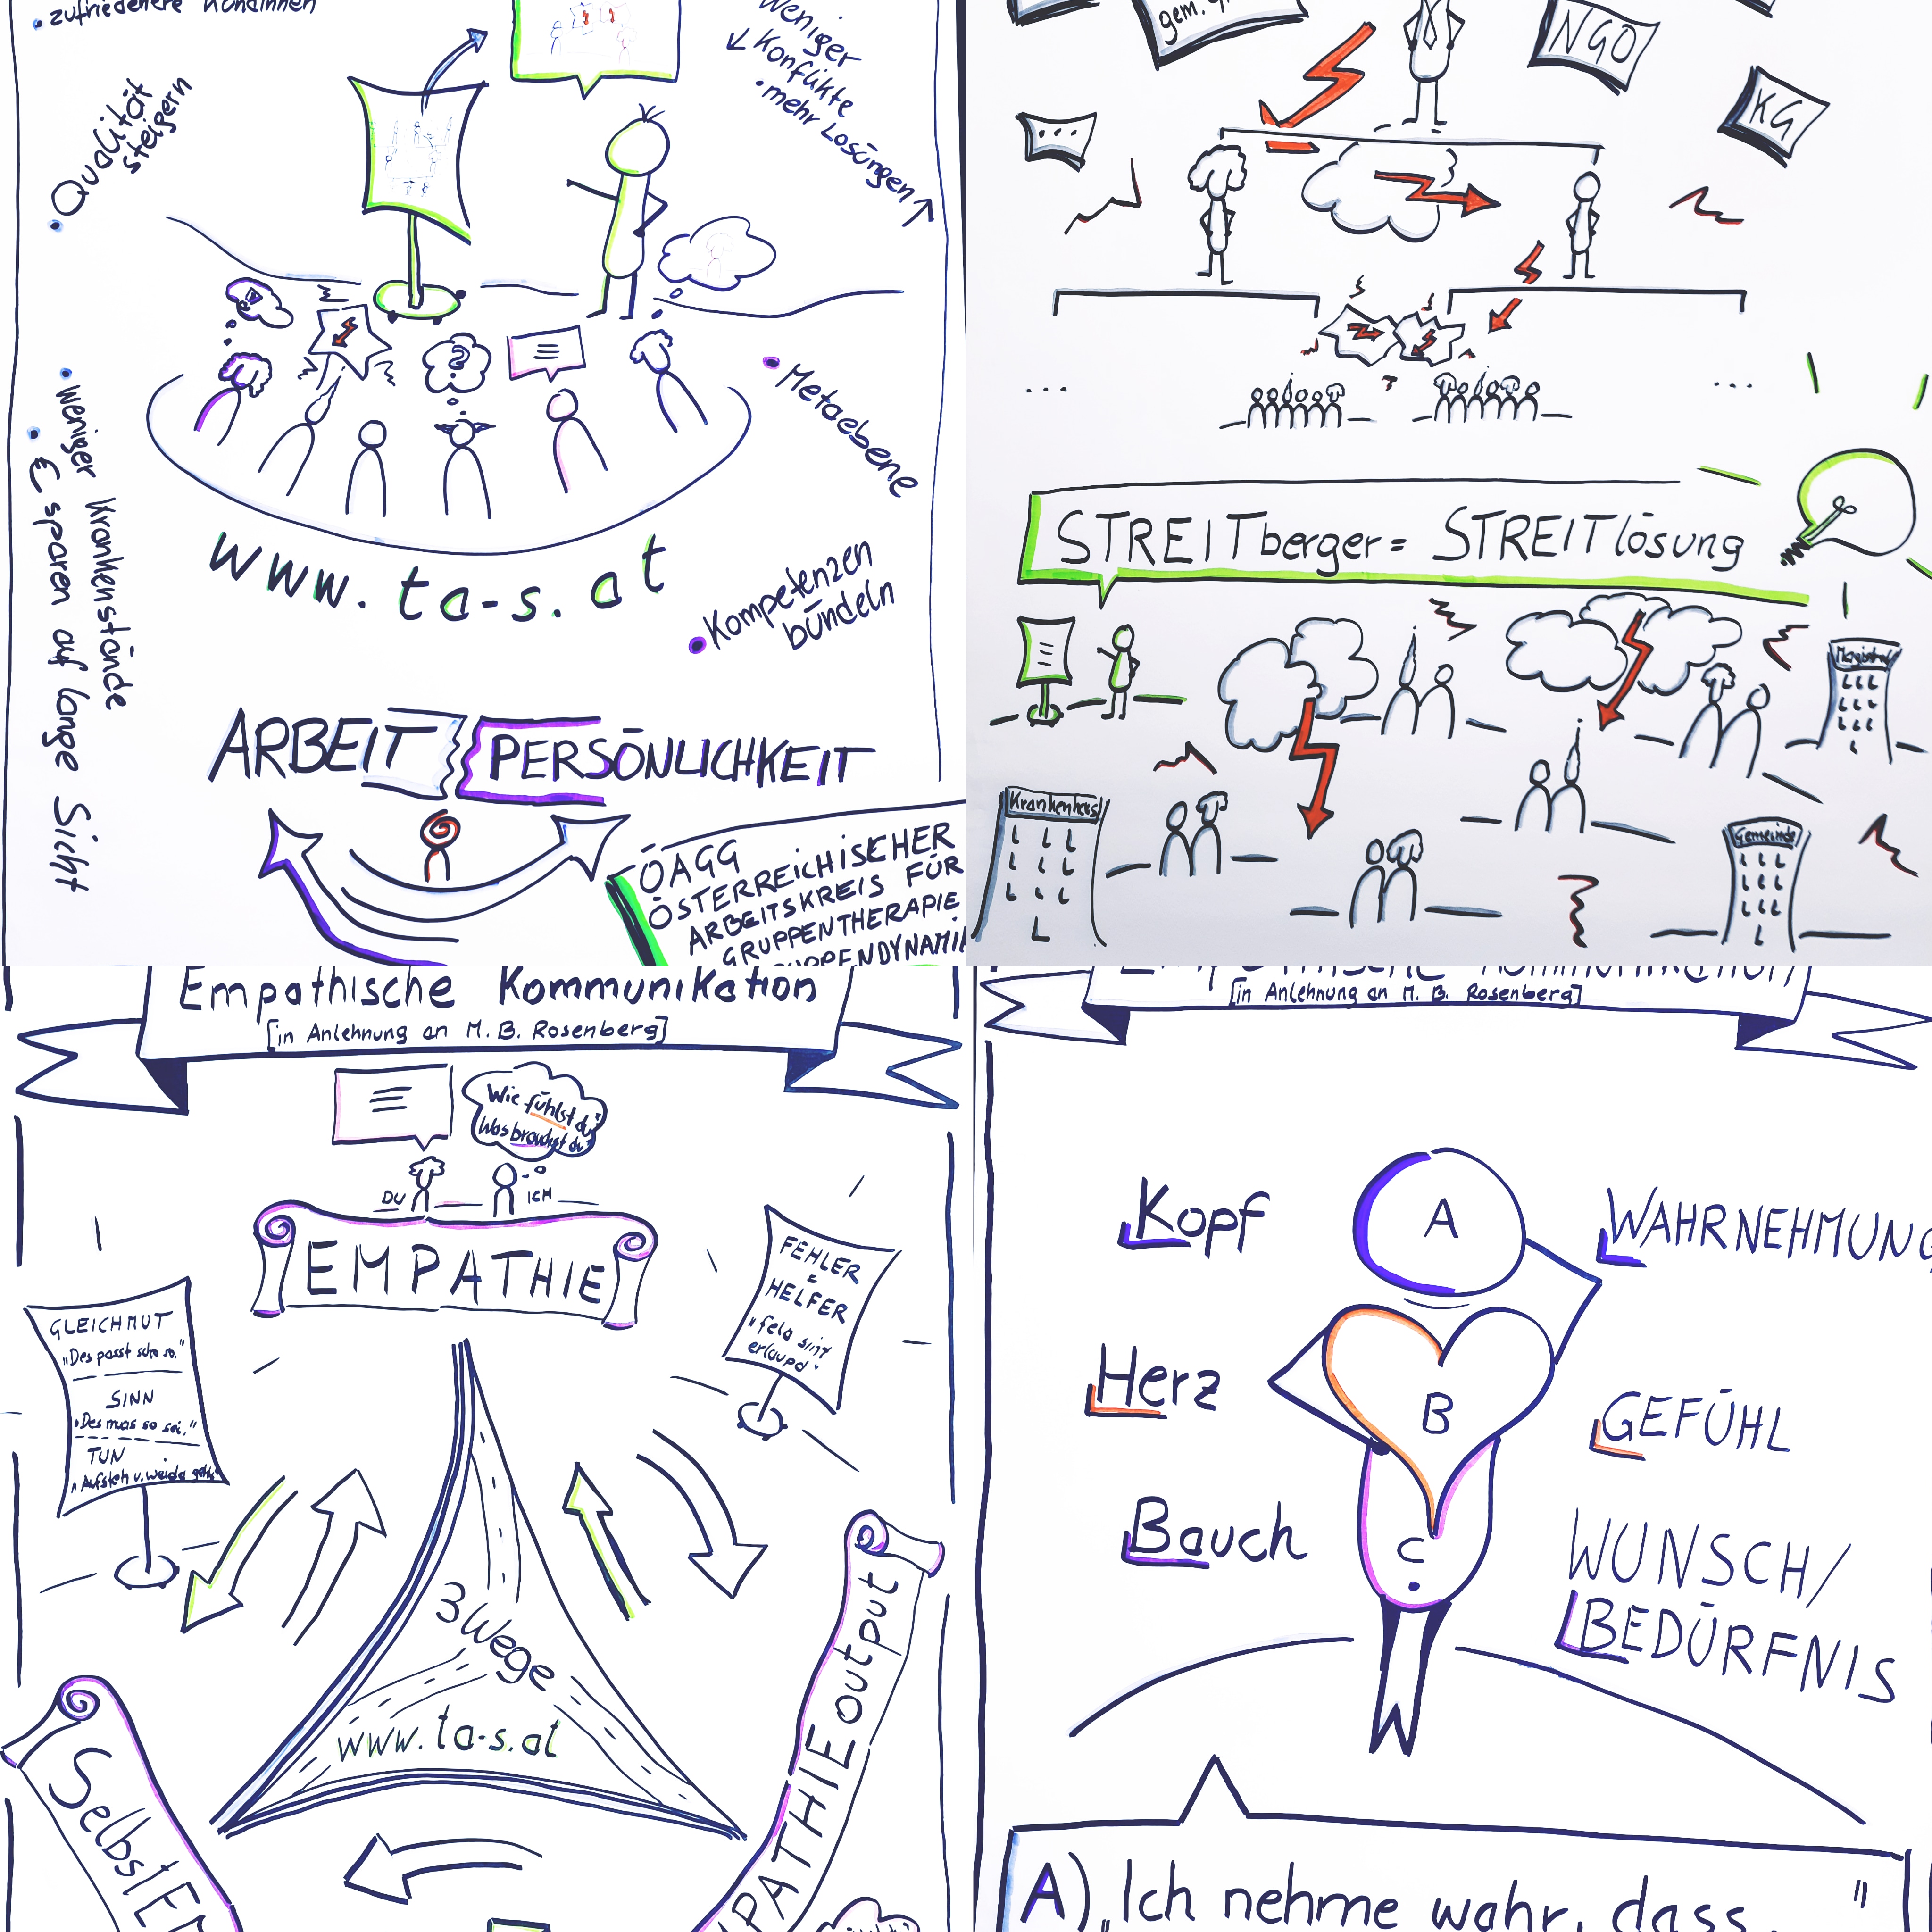 • zufriedenere Kundinnen
Weniger
Konflikte
• mehr Lösungen
• Qualität
steigern
?
• Metaebene
• weniger Krankenstände
• € sparen auf lange Sicht
www.ta-s.at
• Kompetenzen
bündeln
ARBEIT PERSÖNLICHKEIT
ÖAGG
ÖSTERREICHISCHER
ARBEITSKREIS FÜR
GRUPPENTHERAPIE
gem.
NGO
KG
...
?
...
...
STREITberger = STREITlösung
Magistrat
Krankenhaus
Gemeinde
Empathische Kommunikation
[in Anlehnung an M. B. Rosenberg]
Wie fühlst du?
Was brauchst du?
DU
ICH
EMPATHIE
FEHLER
=
HELFER
"fela sint
erlaupd"
GLEICHMUT
"Des passt scho so."
SINN
"Des muas so sei."
TUN
"Aufsteh u. weida geh"
3 Wege
www.ta-s.at
EMPATHIE output
[in Anlehnung an M. B. Rosenberg]
Kopf
A
WAHRNEHMUNG
Herz
B
GEFÜHL
Bauch
C
WUNSCH/
BEDÜRFNIS
A) "Ich nehme wahr, dass "